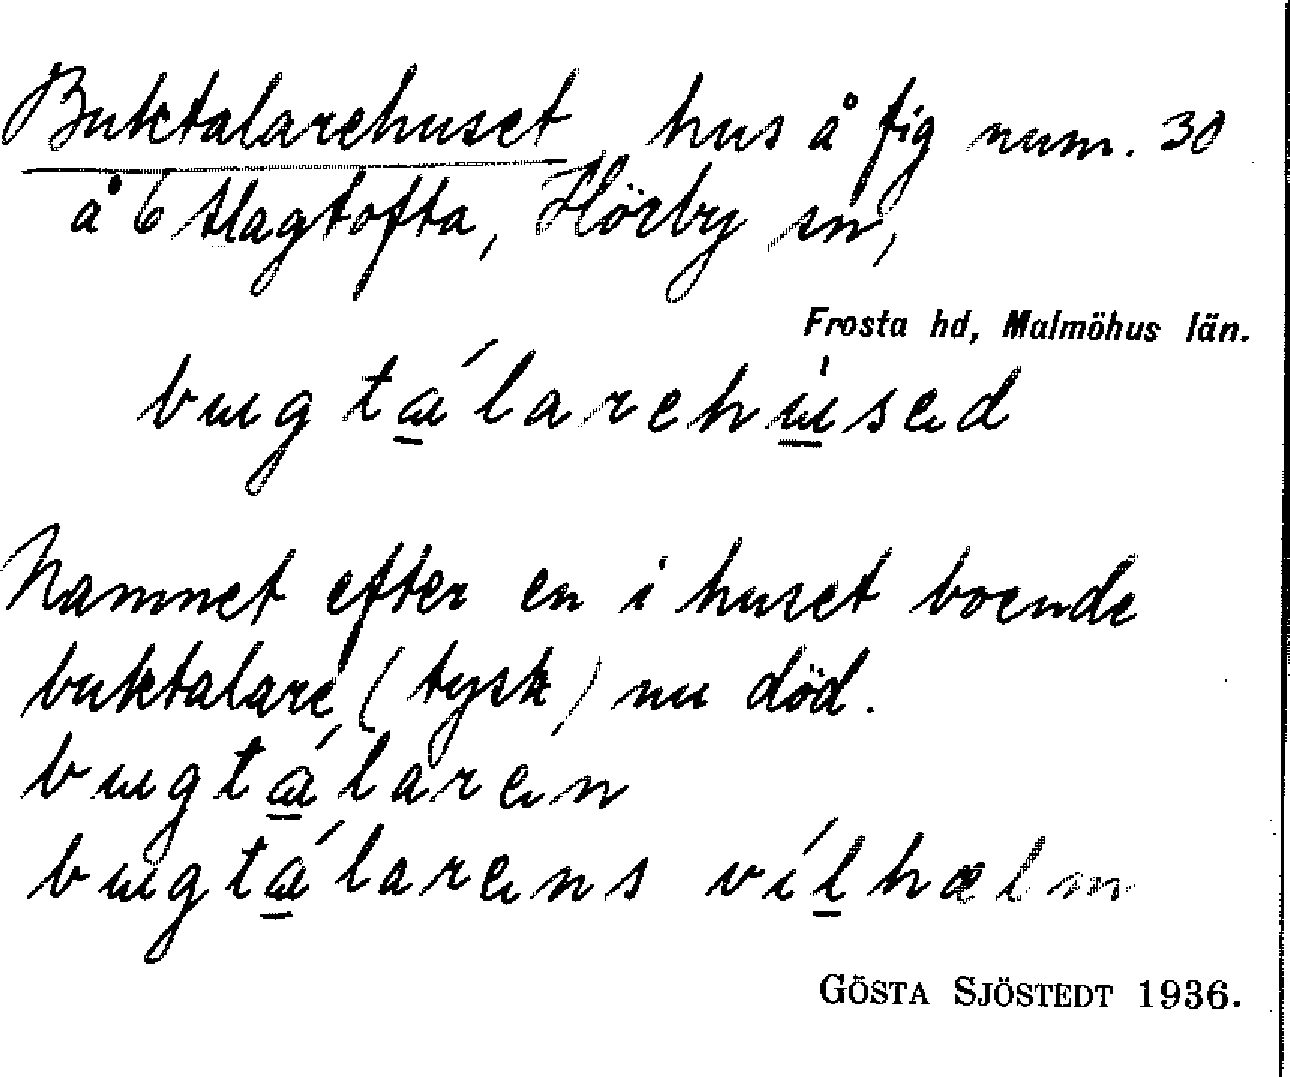 Buktalarehuset hus å fig num. 30
å 6 Slagtofta, Hörby sn,
Frosta hd, Malmöhus län.
bugtálarehúsed
Namnet efter en i huset boende
buktalare (tysk) nu död.
bugtálaren
bugtálarens vílhælm
GÖSTA SJÖSTEDT 1936.